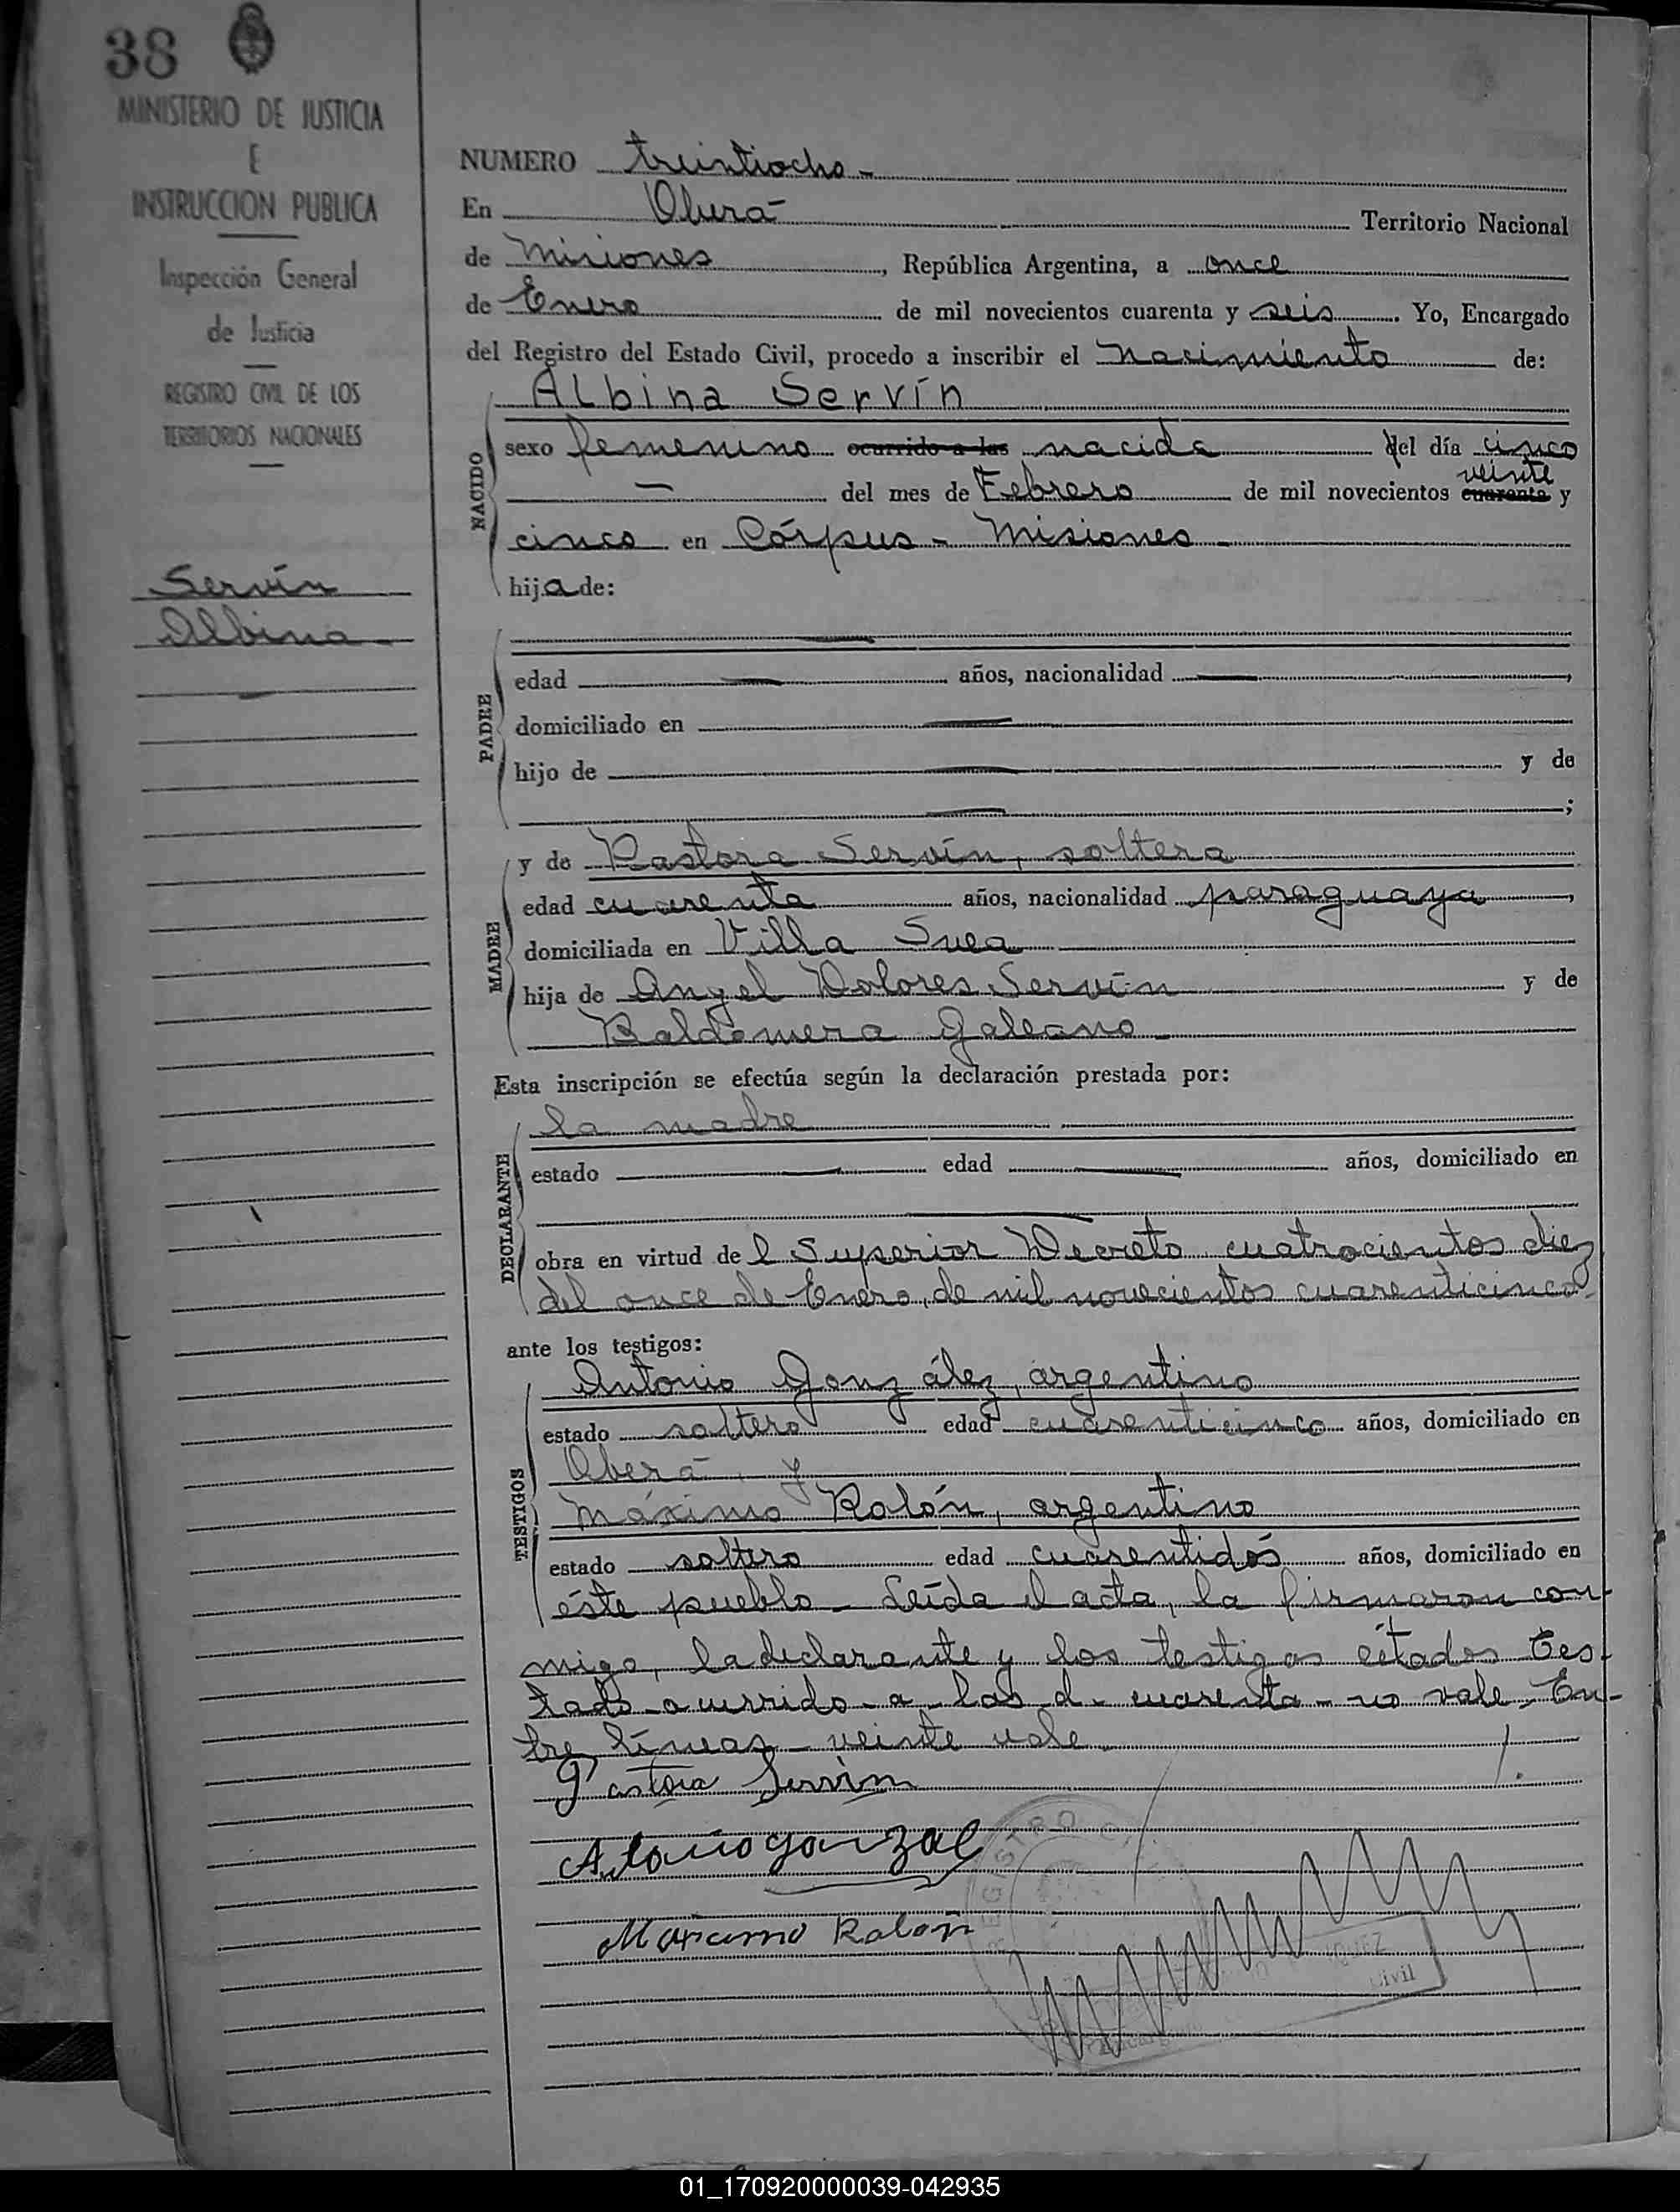 38
MINISTERIO DE JUSTICIA
E
INSTRUCCION PUBLICA
Inspección General
de Justicia
REGISTRO CIVIL DE LOS
TERRITORIOS NACIONALES
Servín
Albina
NUMERO treintiocho -
En Oberá Territorio Nacional
de Misiones, República Argentina, a once
de Enero de mil novecientos cuarenta y seis. Yo, Encargado
del Registro del Estado Civil, procedo a inscribir el nacimiento de:
Albina Servín
NACIDO
sexo femenino ocurrido a las nacida del día cinco
veinte
— del mes de Febrero de mil novecientos cuarenta y
cinco en Córpus - Misiones -
hija de:
PADRE
edad — años, nacionalidad —,
domiciliado en —
hijo de — y de
—;
MADRE
y de Pastora Servín, soltera
edad cuarenta años, nacionalidad paraguaya,
domiciliada en Villa Svea
hija de Angel Dolores Servín y de
Baldomera Galeano
Esta inscripción se efectúa según la declaración prestada por:
DECLARANTE
la madre
estado — edad — años, domiciliado en
—
obra en virtud del Superior Decreto cuatrocientos diez
del once de Enero, de mil novecientos cuarenticinco.
ante los testigos:
TESTIGOS
Antonio González, argentino
estado soltero edad cuarenticinco años, domiciliado en
Oberá, y
Máximo Rolón, argentino
estado soltero edad cuarentidós años, domiciliado en
éste pueblo - Leída el acta, la firmaron con-
migo, la declarante y los testigos citados Tes-
tado - ocurrido - a - las - d - cuarenta - no vale - En-
tre líneas - veinte vale
Pastora Servin
Antonio Gonzal
Maximo Rolón
REGISTRO C
QUEZ
Civil
01_170920000039-042935